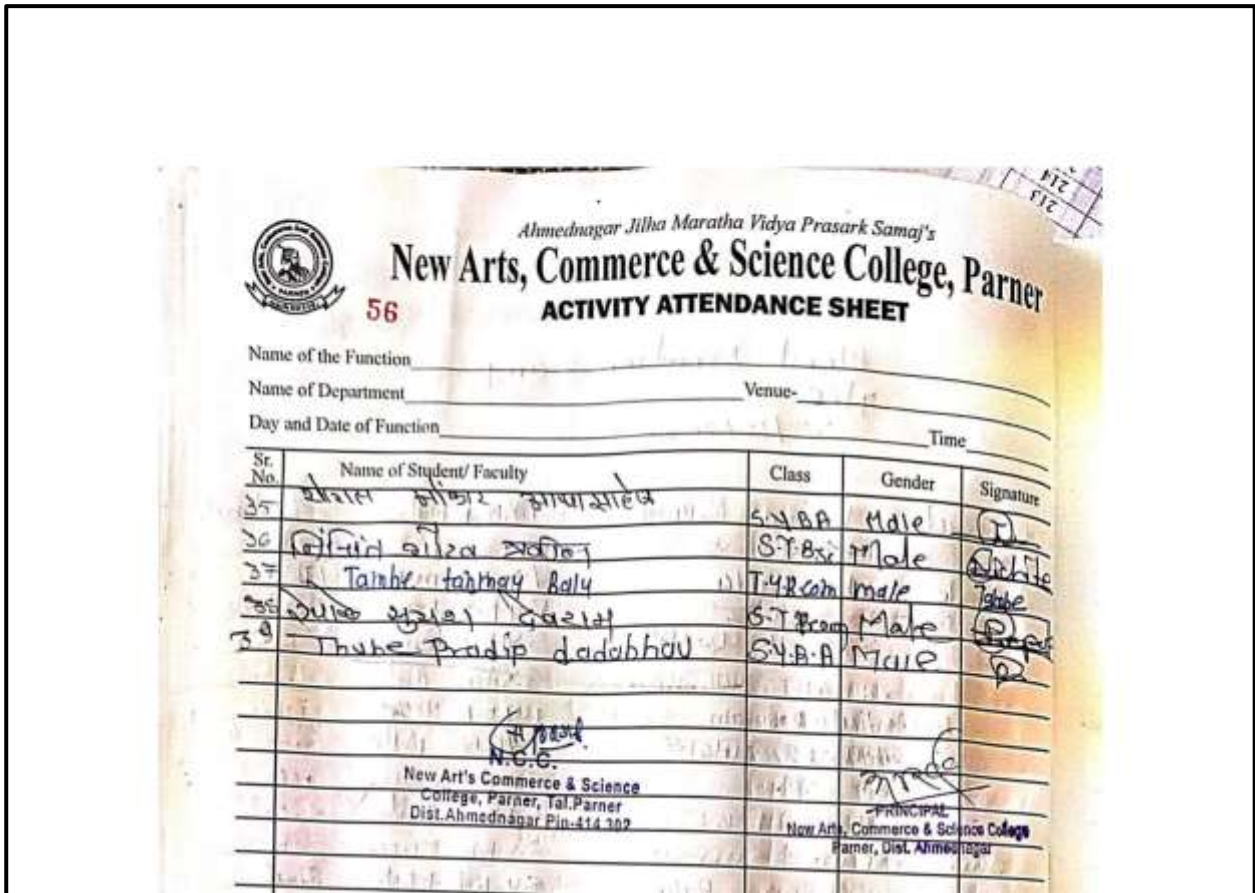 213
214
Ahmednagar Jilha Maratha Vidya Prasark Samaj's
New Arts, Commerce & Science College, Parner
56 ACTIVITY ATTENDANCE SHEET
Name of the Function
Name of Department Venue-
Day and Date of Function Time
Sr. No. Name of Student/ Faculty Class Gender Signature
35 ओंकार S.Y.BA Male
36 S.Y.Bsc Male
37 Tambe tanmay Balu T.Y.B.com male Tambe
सुयश देवराम Male
39 Thube Pradip dadabhau S.Y.B.A Male
N.C.C.
New Art's Commerce & Science
College, Parner, Tal.Parner
Dist.Ahmednagar Pin-414 302
PRINCIPAL
New Arts, Commerce & Science College
Parner, Dist. Ahmednagar